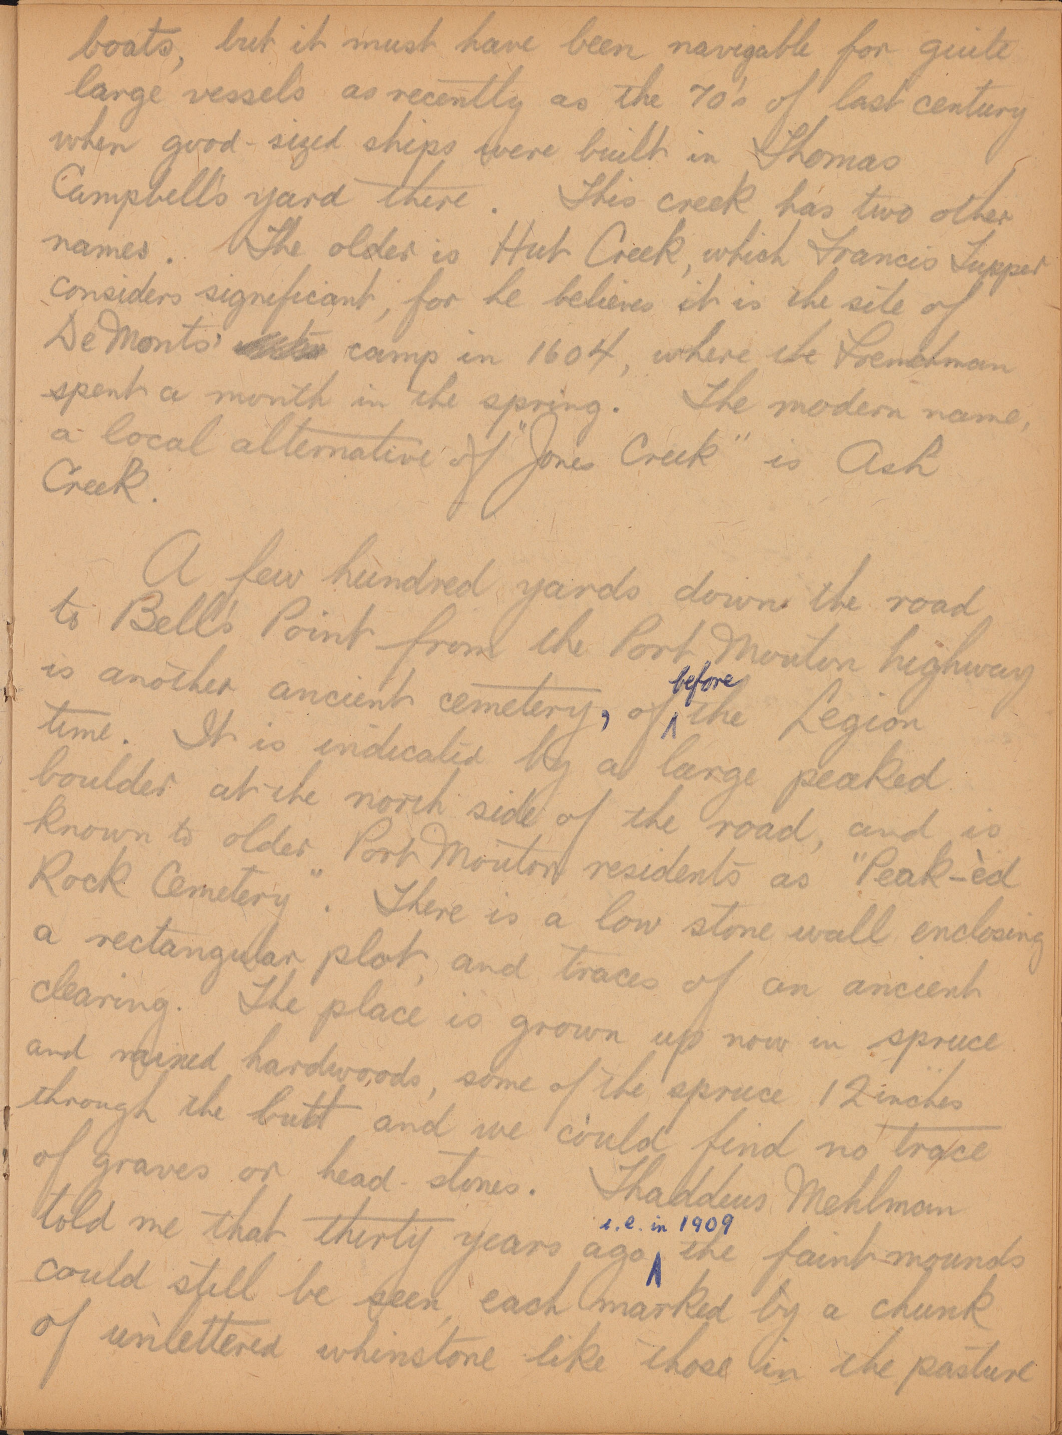 boats, but it must have been navigable for quite
large vessels as recently as the 70's of last century
when good-sized ships were built in Thomas
Campbell's yard there. This creek has two other
names. The older is Hut Creek, which Francis Tupper
considers significant, for he believes it is the site of
DeMonts' camp in 1604, where the Frenchman
spent a month in the spring. The modern name,
a local alternative of "Jones Creek" is Ash
Creek.
A few hundred yards down the road
to Bell's Point from the Port Mouton highway
is another ancient cemetery, of before the Legion
time. It is indicated by a large peaked
boulder at the north side of the road, and is
known to older Port Mouton residents as "Peak-èd
Rock Cemetery". There is a low stone wall enclosing
a rectangular plot, and traces of an ancient
clearing. The place is grown up now in spruce
and mixed hardwoods, some of the spruce 12 inches
through the butt and we could find no trace
of graves or head-stones. Thaddeus Mehlman
told me that thirty years ago i.e. in 1909 the faint mounds
could still be seen, each marked by a chunk
of unlettered whinstone like those in the pasture